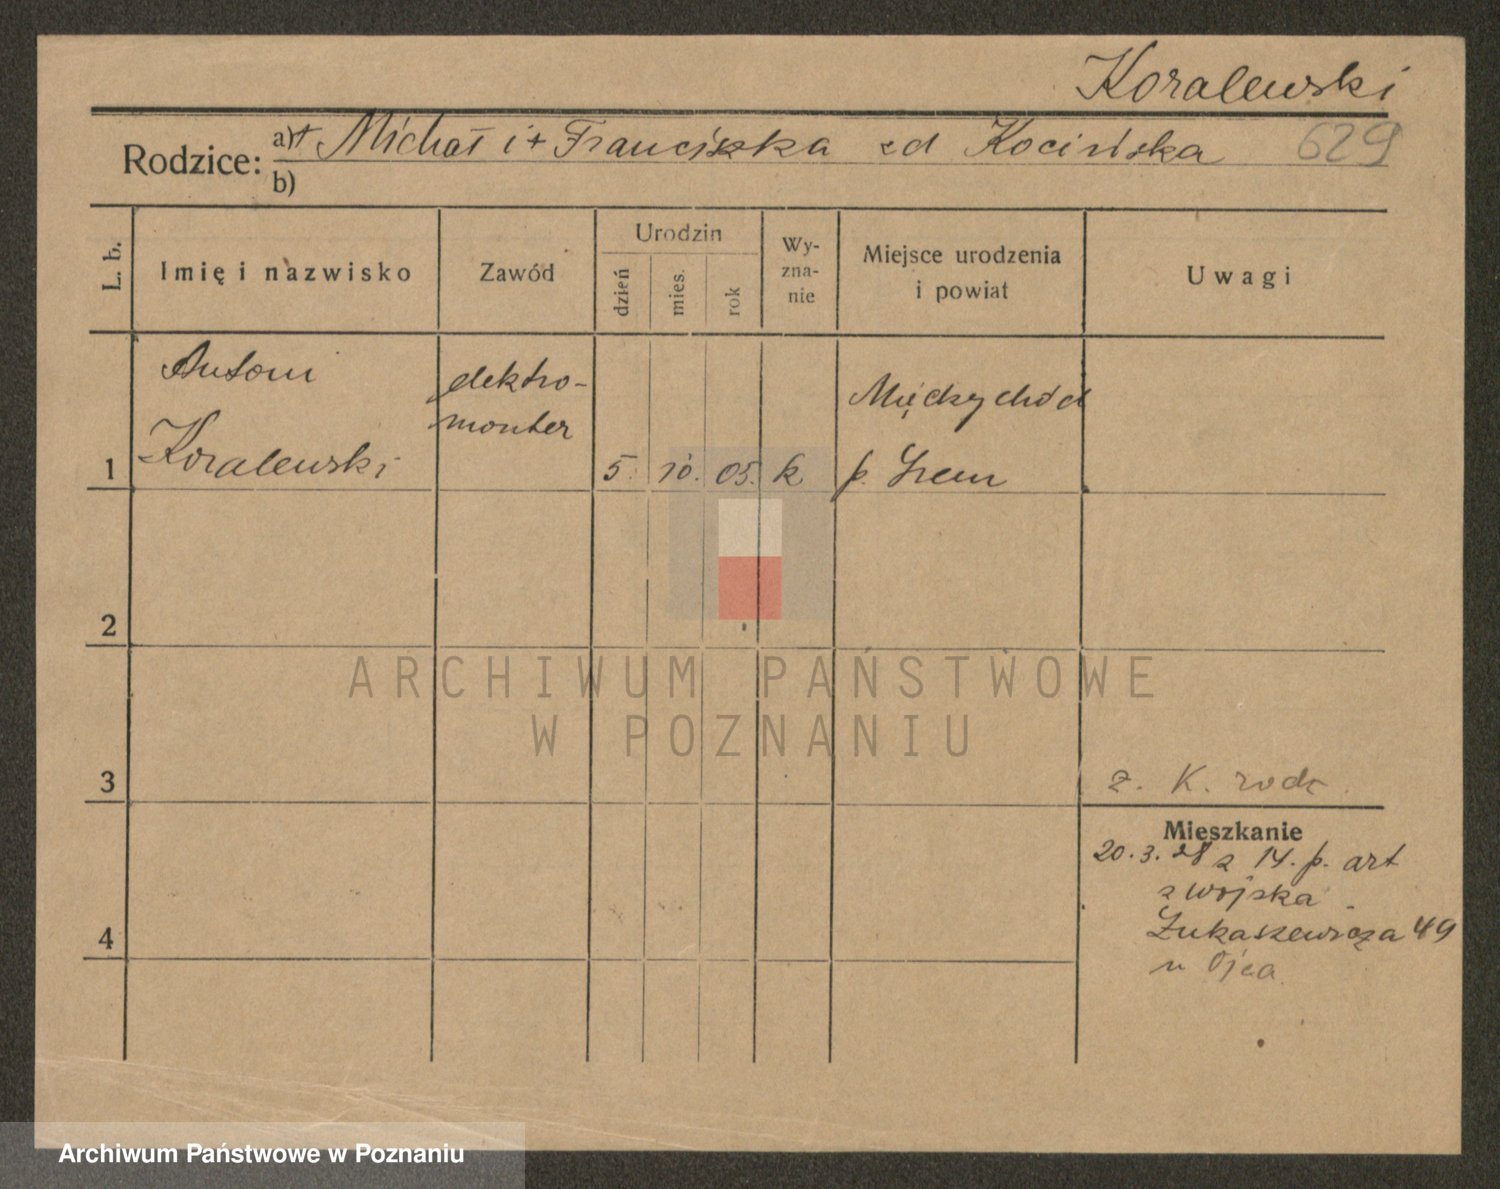 Koralewski
Rodzice: a) + Michał i + Franciszka zd Kocińska 629
b)
L. b. Imię i nazwisko Zawód Urodzin dzień mies. rok Wy-zna-nie Miejsce urodzenia i powiat Uwagi
Antoni elektro- Międzychód
Koralewski monter
1 5. 10. 05. k p. Śrem
2
3 z. K. rodz.
Mieszkanie
20.3.28 z 14. p. art
z wojska
4 Łukaszewicza 49
u Ojca
ARCHIWUM PAŃSTWOWE
W POZNANIU
Archiwum Państwowe w Poznaniu